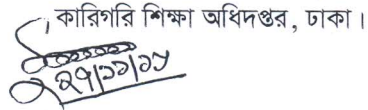 কারিগরি শিক্ষা অধিদপ্তর, ঢাকা।
২৭/১১/১৮